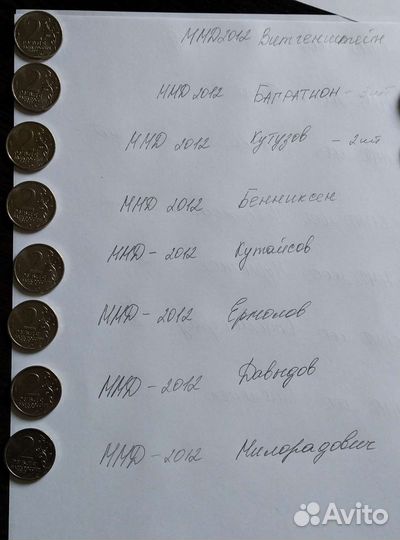 ММД 2012 Витгенштейн
ММД 2012 Багратион - 2 шт
ММД 2012 Кутузов - 2 шт
ММД 2012 Бенниксен
ММД - 2012 Кутайсов
ММД - 2012 Ермолов
ММД - 2012 Давыдов
ММД - 2012 Милорадович
2
2
2
2
2
2
2
2
Avito